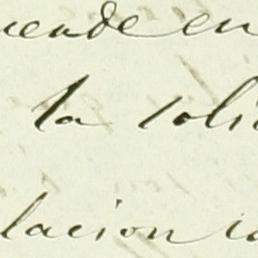 uende en
la soli
lacion co